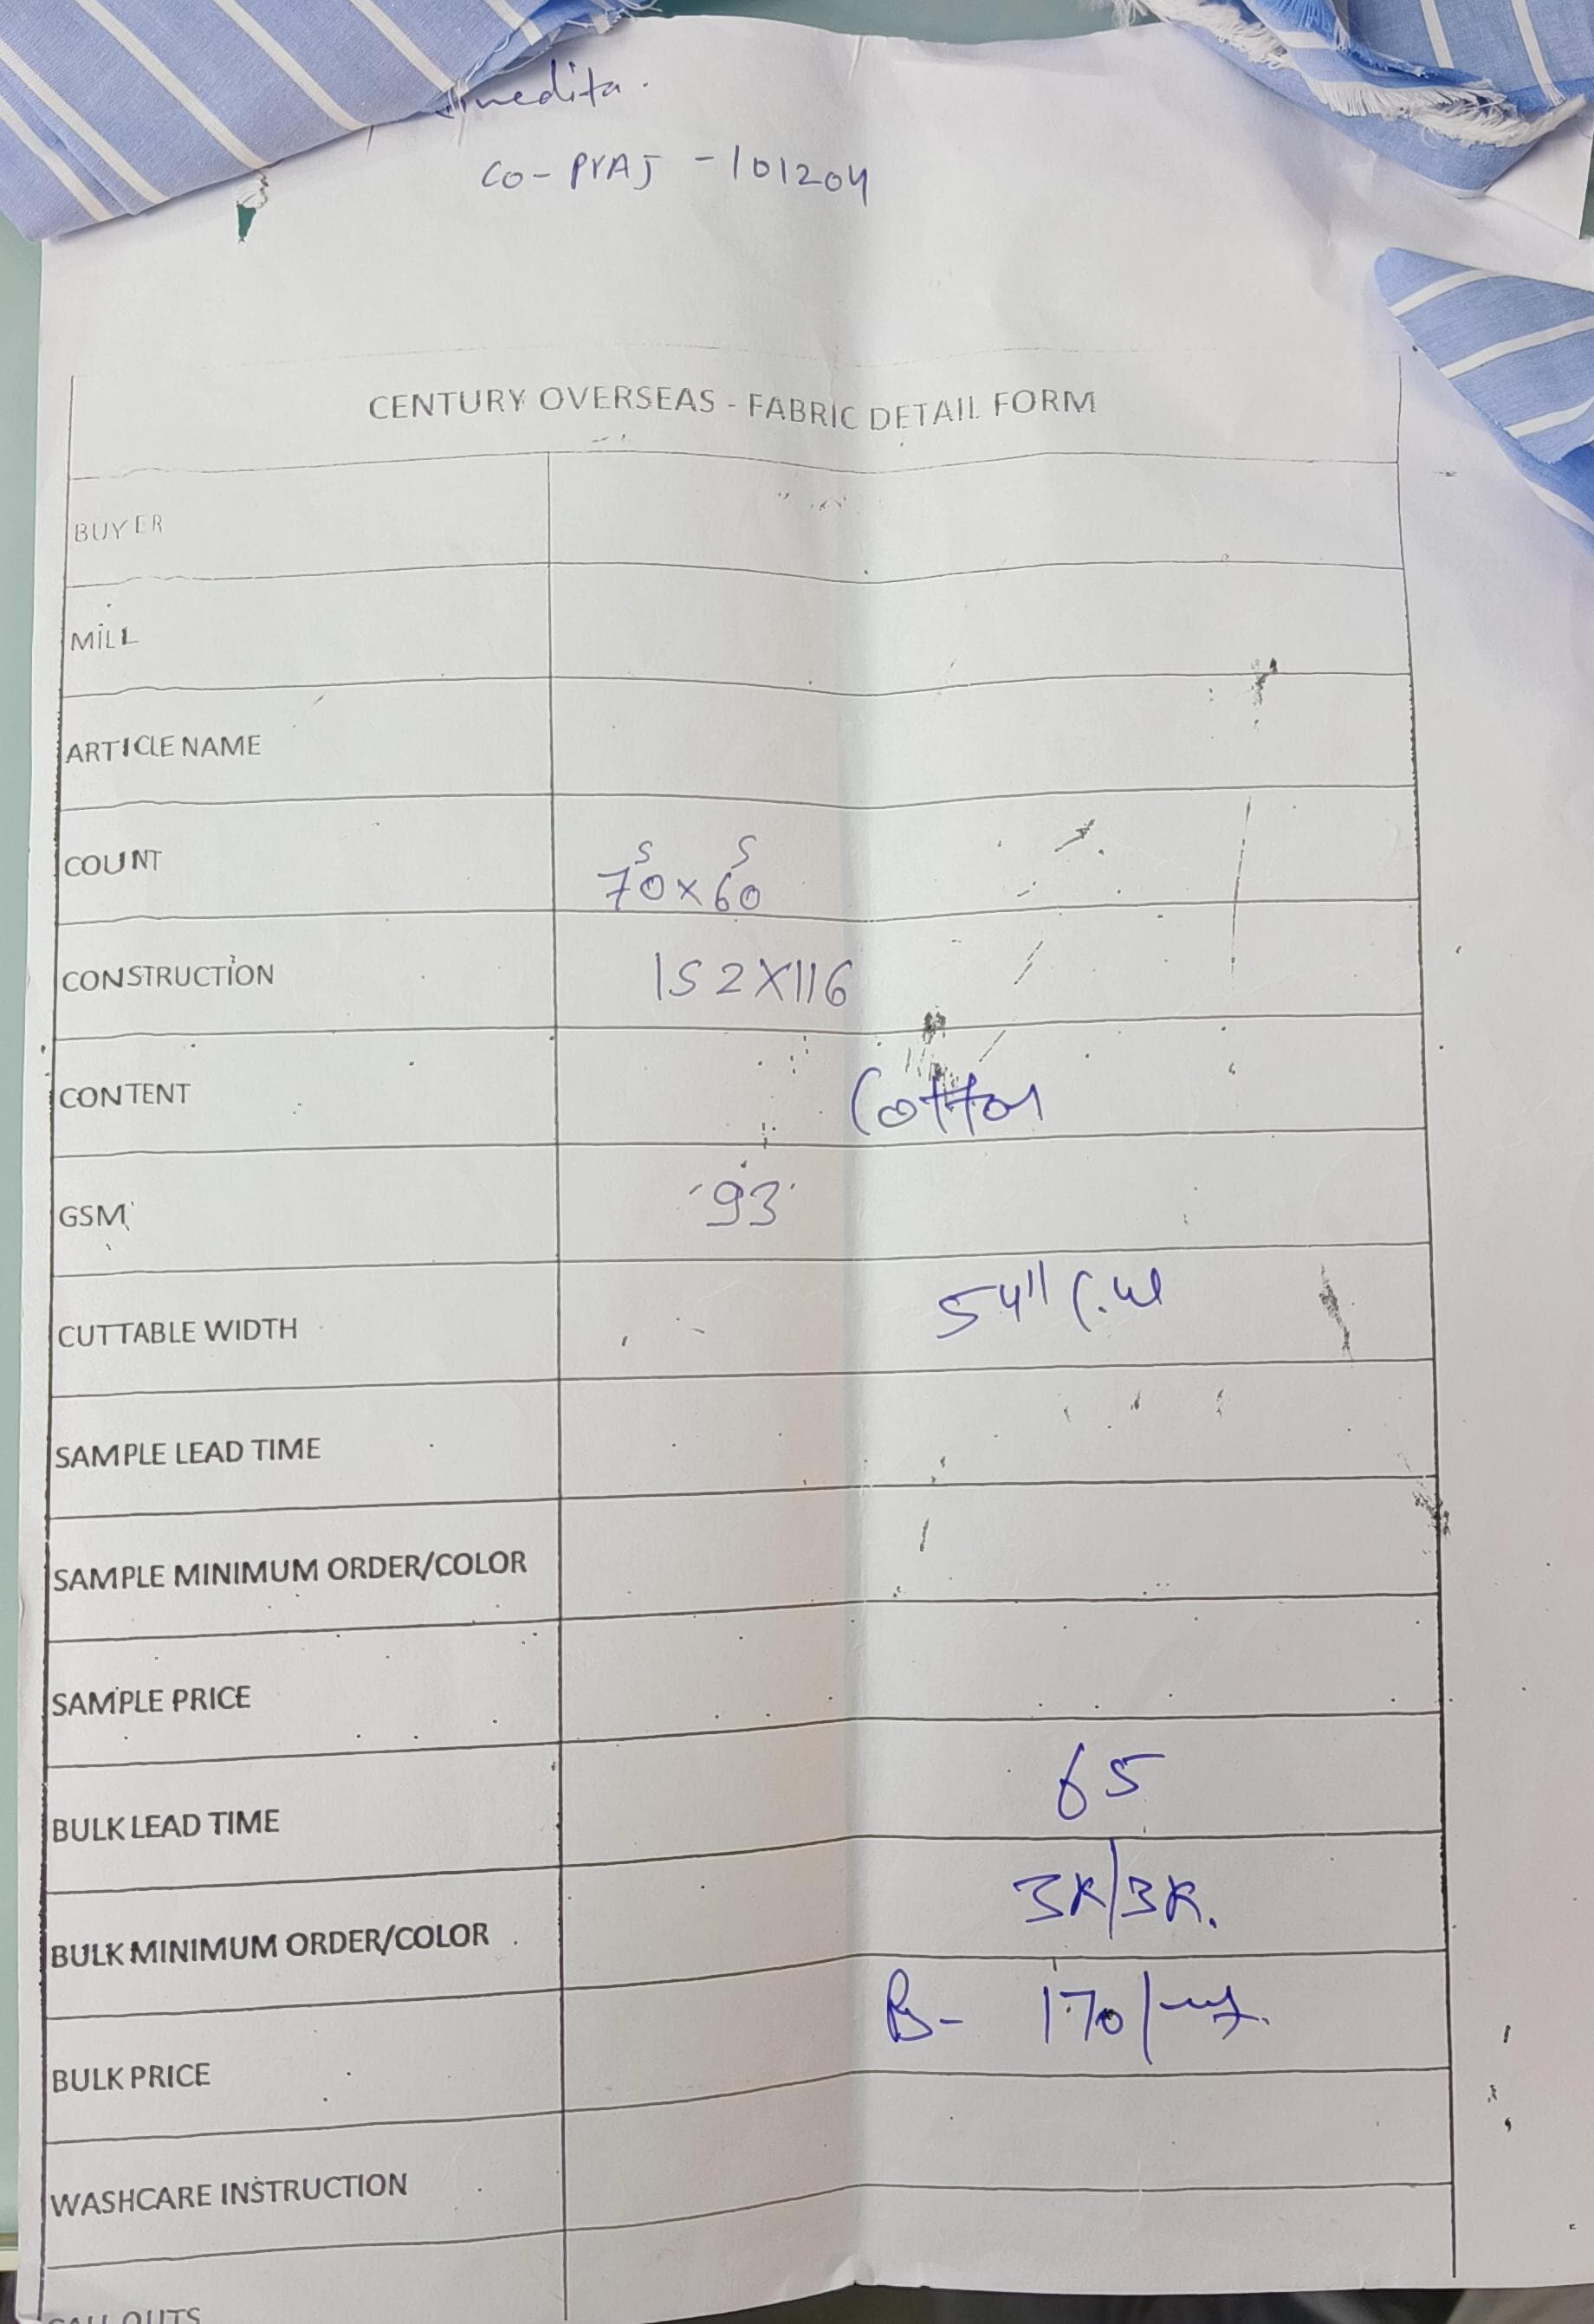 CO-PYAJ - 101204
CENTURY OVERSEAS - FABRIC DETAIL FORM
BUYER
MILL
ARTICLE NAME
COUNT 70s x 60s
CONSTRUCTION 152X116
CONTENT Cotton
GSM 93
CUTTABLE WIDTH 54" C.W
SAMPLE LEAD TIME
SAMPLE MINIMUM ORDER/COLOR
SAMPLE PRICE
BULK LEAD TIME 65
BULK MINIMUM ORDER/COLOR 3K/3K.
BULK PRICE 170/
WASHCARE INSTRUCTION
CALL OUTS